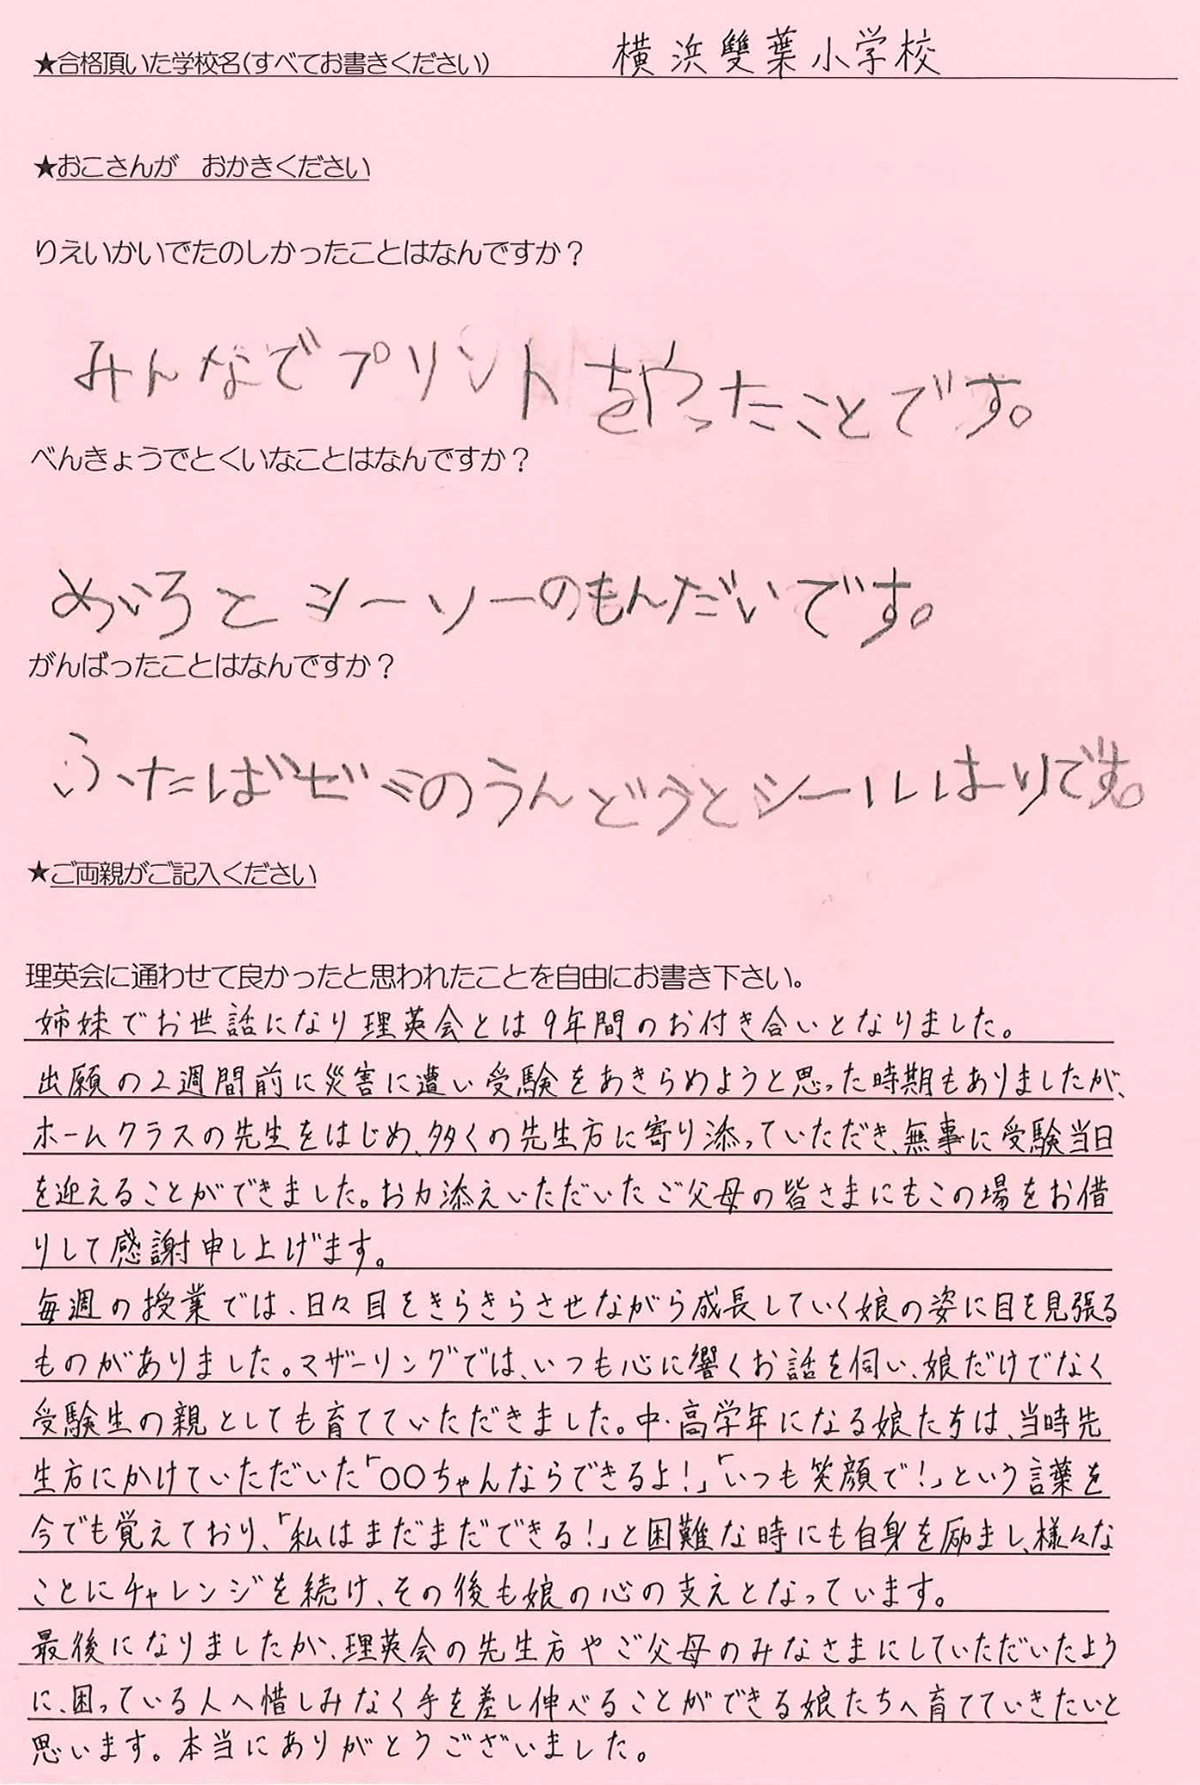 ★合格頂いた学校名(すべてお書きください) 横浜雙葉小学校
★おこさんが おかきください
りえいかいでたのしかったことはなんですか？
みんなでプリントをやったことです。
べんきょうでとくいなことはなんですか？
めいろとシーソーのもんだいです。
がんばったことはなんですか？
ふたばゼミのうんどうとシールはりです。
★ご両親がご記入ください
理英会に通わせて良かったと思われたことを自由にお書き下さい。
姉妹でお世話になり理英会とは9年間のお付き合いとなりました。
出願の2週間前に災害に遭い受験をあきらめようと思った時期もありましたが、
ホームクラスの先生をはじめ、多くの先生方に寄り添っていただき、無事に受験当日
を迎えることができました。お力添えいただいたご父母の皆さまにもこの場をお借
りして感謝申し上げます。
毎週の授業では、日々目をきらきらさせながら成長していく娘の姿に目を見張る
ものがありました。マザーリングでは、いつも心に響くお話を伺い、娘だけでなく
受験生の親としても育てていただきました。中・高学年になる娘たちは、当時先
生方にかけていただいた「〇〇ちゃんならできるよ！」「いつも笑顔で！」という言葉を
今でも覚えており、「私はまだまだできる！」と困難な時にも自身を励まし、様々な
ことにチャレンジを続け、その後も娘の心の支えとなっています。
最後になりましたが、理英会の先生方やご父母のみなさまにしていただいたよう
に、困っている人へ惜しみなく手を差し伸べることができる娘たちへ育てていきたいと
思います。本当にありがとうございました。